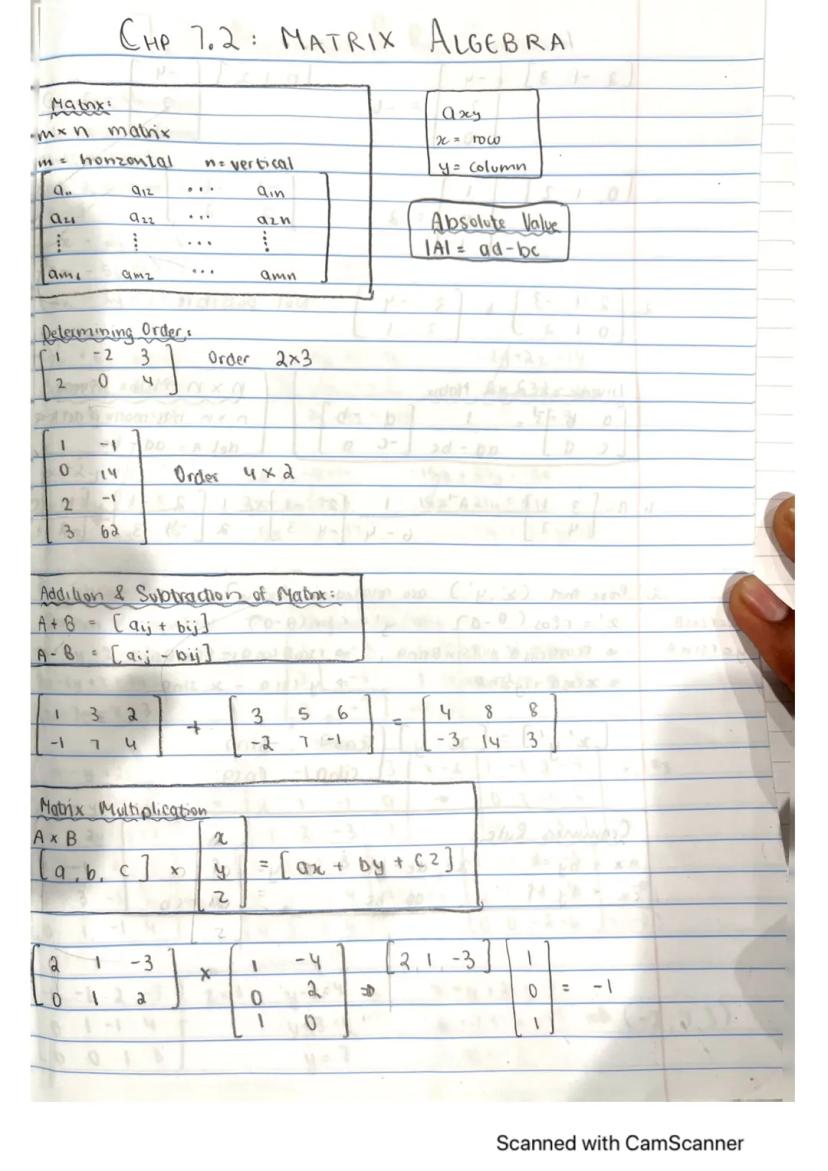 CHP 7.2: MATRIX ALGEBRA
Matrix:
m×n matrix
m = horizontal n = vertical
a₁₁ a₁₂ ... a₁n
a₂₁ a₂₂ ... a₂n
⋮ ⋮ ... ⋮
am₁ am₂ ... amn
axy
x = row
y = column
Absolute Value
|A| = ad-bc
Determining Order:
[1 -2 3] Order 2×3
[2 0 4]
[1 -1]
[0 14] Order 4×2
[2 -1]
[3 62]
Addition & Subtraction of Matrix:
A+B = [aij + bij]
A-B = [aij - bij]
[1 3 2] + [3 5 6] = [4 8 8]
[-1 7 4] [-2 7 -1] [-3 14 3]
Matrix Multiplication
A×B
[a, b, c] × [x y z] = [ax + by + cz]
[2 1 -3] × [1 -4] ⇒ [2, 1, -3] [1]
[0 1 2] [0 2] [0] = -1
[1 0] [1]
Scanned with CamScanner